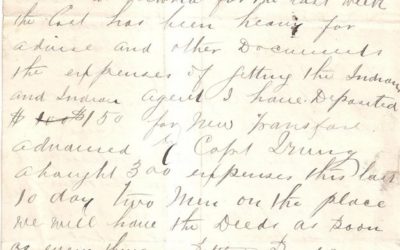 for the last week
the Cost has been heavy for
advise and other Documents
the expenses of getting the Indians
and Indian Agent I have Deposited
$150 for New Transfare
advanced Capt Irving
a bought 300 expenses this last
10 day two Men on the place
we will have the Deeds as soon
as